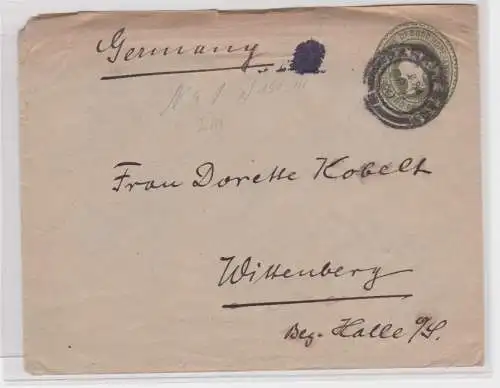 Germany
Frau Dorette Kobelt
Wittenberg
Bez. Halle a/S.